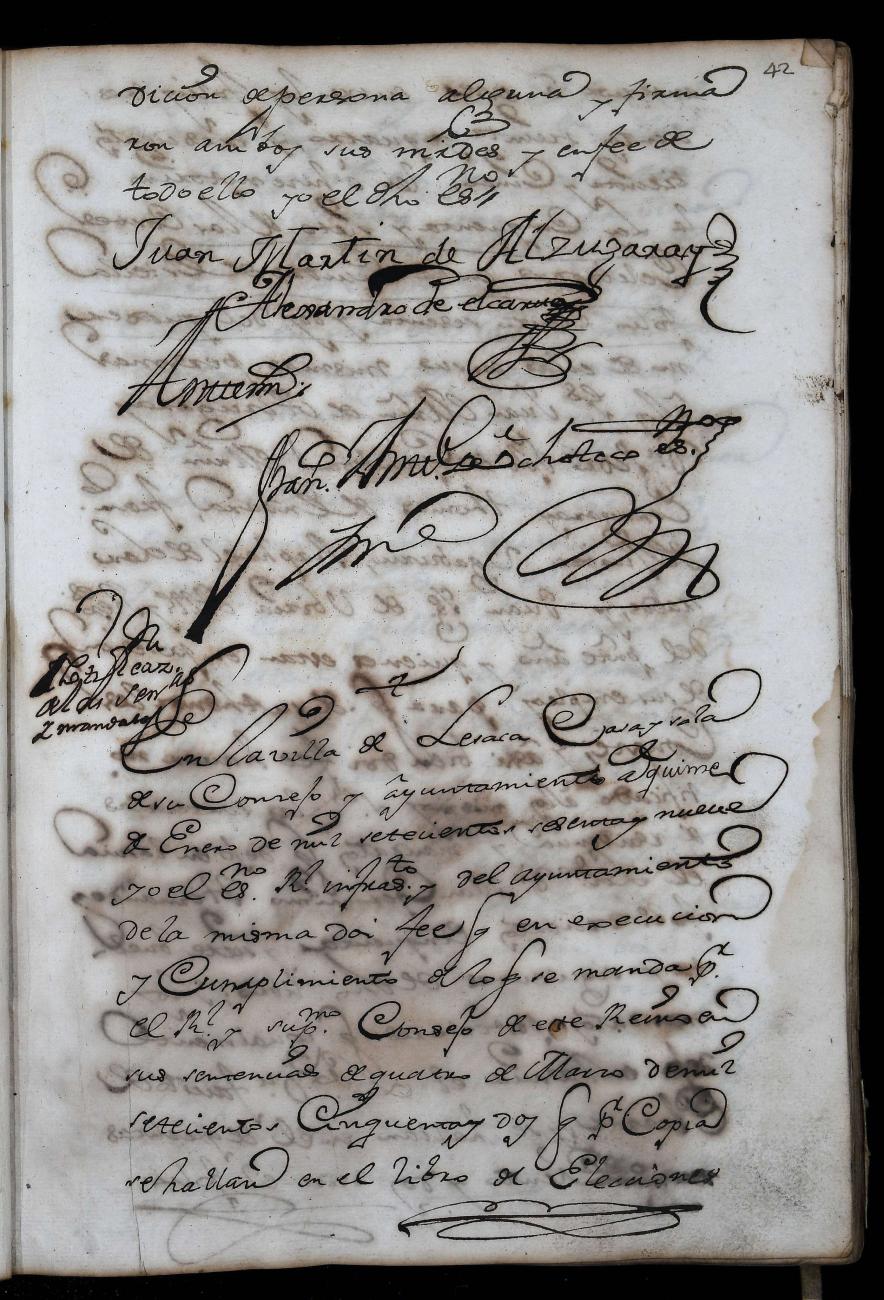 42
dicion de persona alguna y firma
ron ambos sus mrzdes y en fee de
todo ello yo el dho esno
Juan Martin de Alzugaray
Alessandro de elcano
Antemi
Fran.
Notificaz.on
de las Sen.as
y mandatos
En la villa de Lesaca Casa y sala
de su Consejo y ayuntamiento a quince
de Enero de mil setecientos sesenta y nueve
yo el esno Rl infrasto y del ayuntamiento
de la misma doi fee q en execucion
y Cumplimiento de lo q se manda pr
el Rl y supmo Consejo de este Reino en
sus sentencias de quatro de Marzo de mil
setecientos Cinquenta y dos q pr Copia
se hallan en el libro de Elecciones